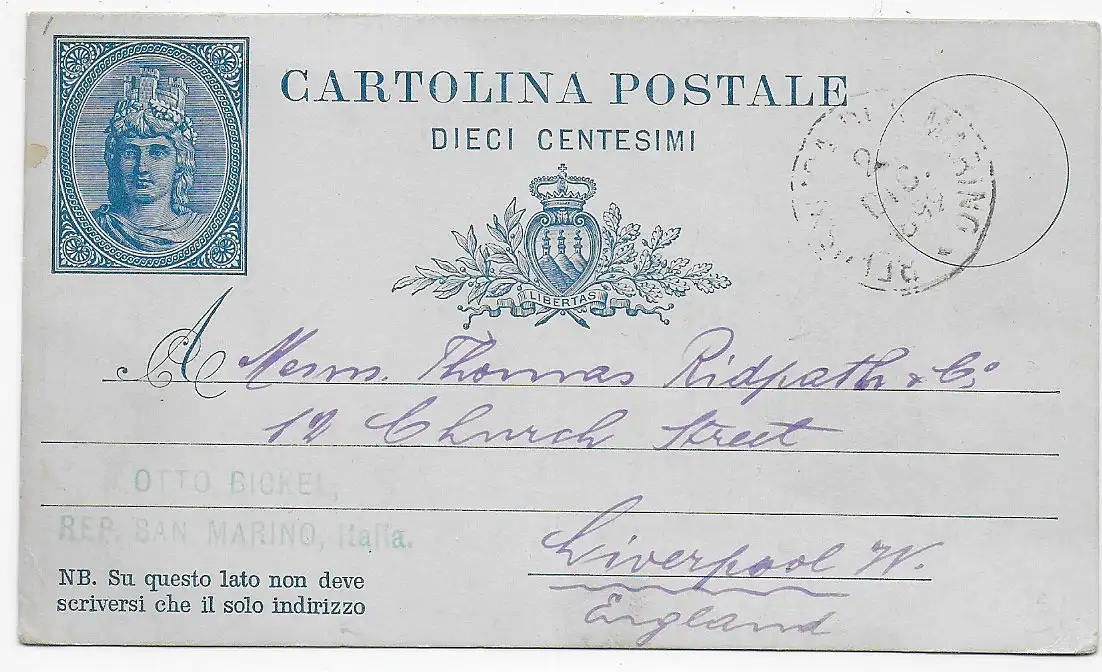 CARTOLINA POSTALE
DIECI CENTESIMI
LIBERTAS
A Messrs. Thomas Ridpath & Co
12 Church Street
OTTO BICKEL,
REP. SAN MARINO, Italia.
Liverpool W.
England
NB. Su questo lato non deve
scriversi che il solo indirizzo